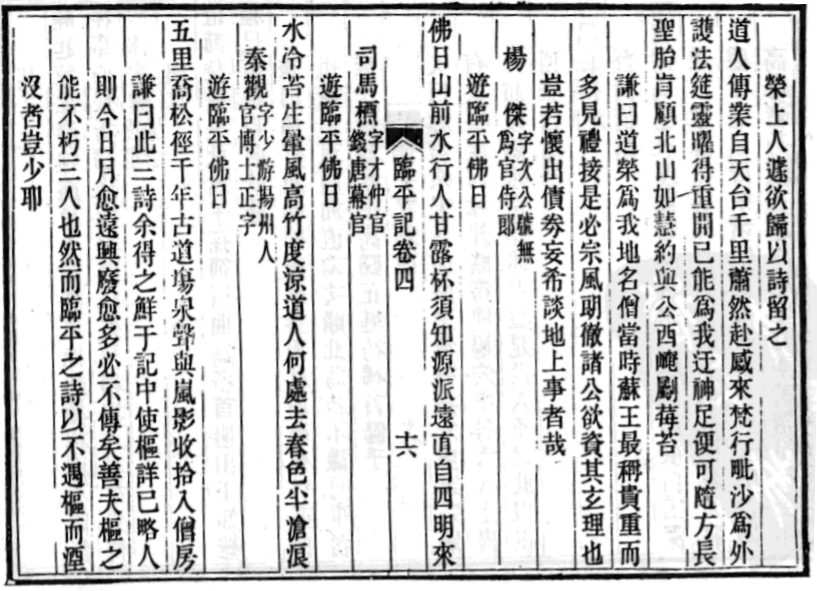 榮上人遽欲歸以詩留之
道人傳業自天台千里蕭然赴感來梵行毗沙爲外
護法筵靈曜得重開已能爲我迂神足便可隨方長
聖胎肯顧北山如慧約與公西崦劚莓苔
謙曰道榮爲我地名僧當時蘇王最稱貴重而
多見禮接是必宗風朗徹諸公欲資其玄理也
豈若懷出債劵妄希談地上事者哉
楊傑字次公號無爲官侍郎
遊臨平佛日
佛日山前水行人甘露杯須知源派遠直自四明來
臨平記卷四 十六
司馬槱字才仲官錢唐幕官
遊臨平佛日
水冷苔生暈風高竹度涼道人何處去春色尘滄浪
秦觀字少游揚州人官博士正字
遊臨平佛日
五里喬松徑千年古道塲泉聲與嵐影收拾入僧房
謙曰此三詩余得之鮮于記中使樞詳已略人
則今日月愈遠興廢愈多必不傳矣善夫樞之
能不朽三人也然而臨平之詩以不遇樞而湮
沒者豈少耶